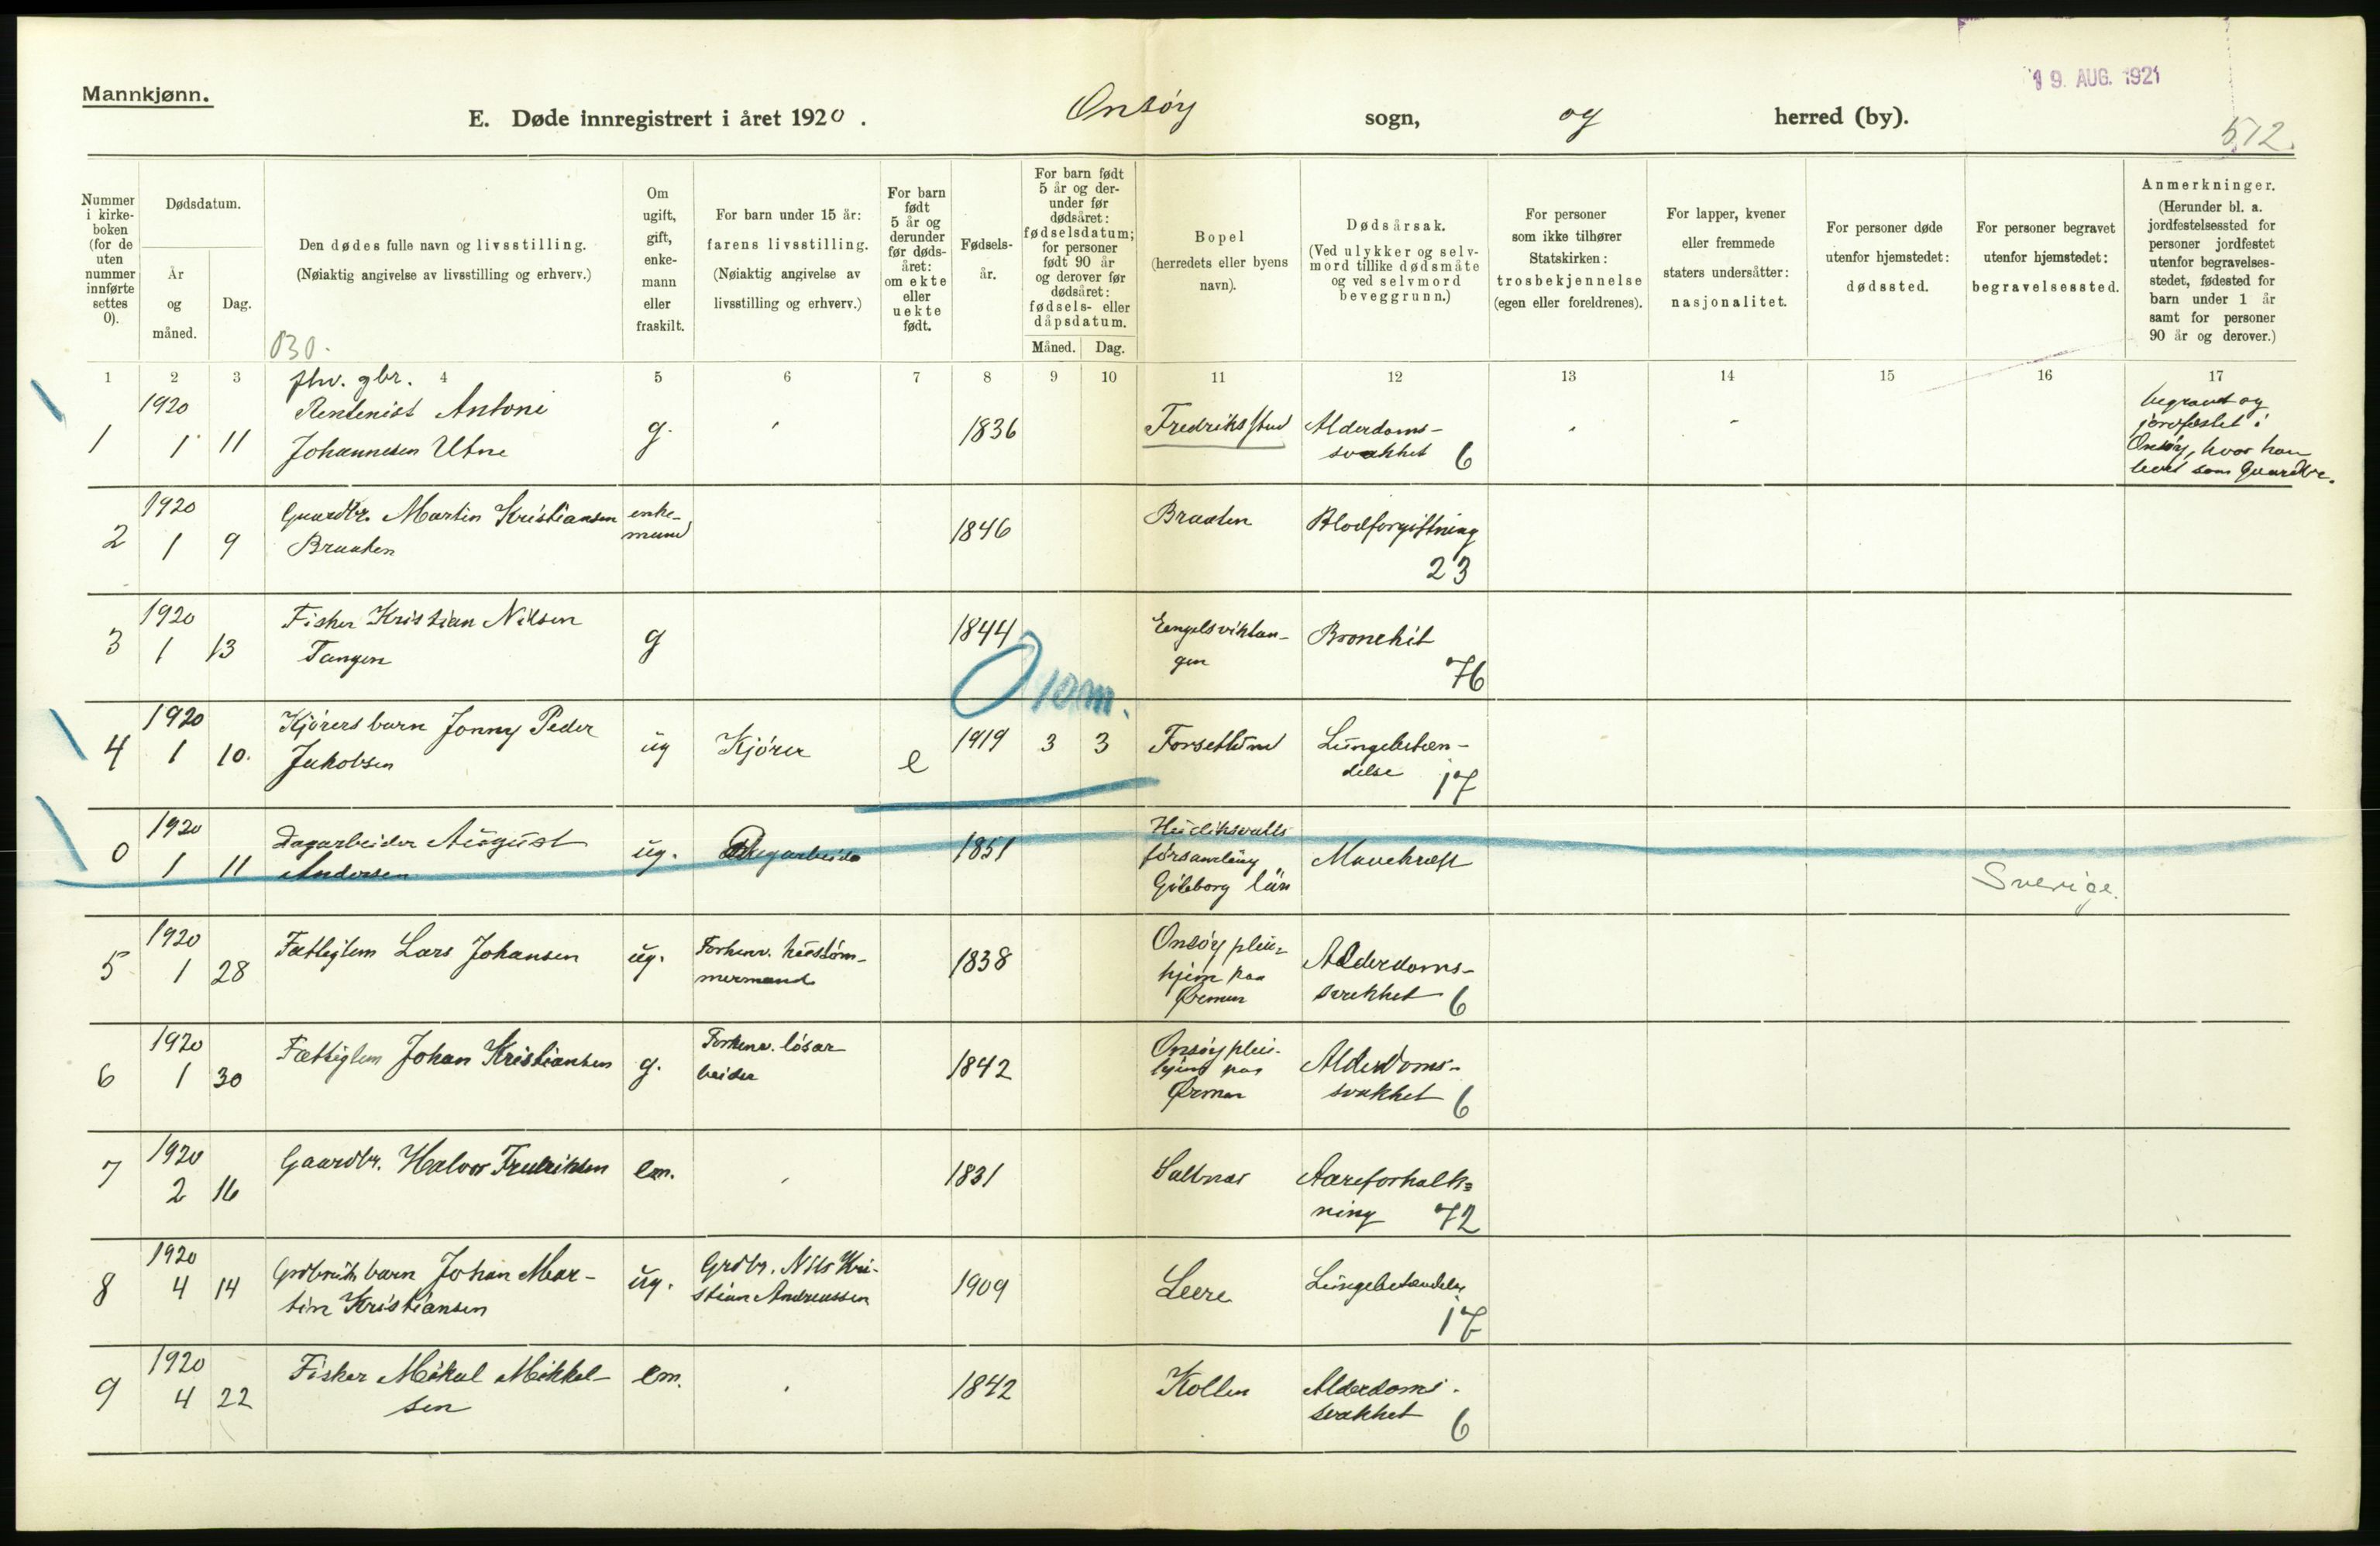 19. AUG. 1921
Mannkjønn.
E. Døde innregistrert i året 1920. Onsøy sogn, og herred (by).
512.
Nummer i kirkeboken (for de uten nummer innførte settes 0).
Dødsdatum.
År og måned.
Dag.
Den dødes fulle navn og livsstilling.
(Nøiaktig angivelse av livsstilling og erhverv.)
030.
Om ugift, gift, enkemann eller fraskilt.
For barn under 15 år: farens livsstilling.
(Nøiaktig angivelse av livsstilling og erhverv.)
For barn født 5 år og derunder før dødsåret: om ekte eller uekte født.
Fødselsår.
For barn født 5 år og derunder før dødsåret: fødselsdatum; for personer født 90 år og derover før dødsåret: fødsels- eller dåpsdatum.
Måned. Dag.
Bopel
(herredets eller byens navn).
Dødsårsak.
(Ved ulykker og selvmord tillike dødsmåte og ved selvmord beveggrunn.)
For personer som ikke tilhører Statskirken: trosbekjennelse (egen eller foreldrenes).
For lapper, kvener eller fremmede staters undersåtter: nasjonalitet.
For personer døde utenfor hjemstedet: dødssted.
For personer begravet utenfor hjemstedet: begravelsessted.
Anmerkninger.
(Herunder bl. a. jordfestelsessted for personer jordfestet utenfor begravelsesstedet, fødested for barn under 1 år samt for personer 90 år og derover.)
1 2 3 4 5 6 7 8 9 10 11 12 13 14 15 16 17
1 1920 1 11 fhv. gbr. Rentenist Antoni Johannesen Utne g. 1836 Fredriksstad Alderdomssvakhet 6 begravet og jordfæstet i Onsøy, hvor han levet som Gaardbr.
2 1920 1 9 Gaardbr. Martin Kristiansen Braaten enkemand 1846 Braaten Blodforgiftning 23
3 1920 1 13 Fisker Kristian Nilsen Tangen g 1844 Eengelsviktangen Bronchit 76
0 10 m.
4 1920 1 10. Kjørers barn Jonny Peder Jakobsen ug Kjører e 1919 3 3 Forsetlund Lungebetændelse 17
0 1920 1 11 Dagarbeider August Andersen ug. Dagarbeider 1851 församling Göteborg län Mavekræft Sverige.
5 1920 1 28 Fattiglem Lars Johansen ug. Forhenv. hustømmermand 1838 Onsøy pleiehjem paa Ørmen Alderdomssvakhet 6
6 1920 1 30 Fattiglem Johan Kristiansen g. Forhenv. løsarbeider 1842 Onsøy pleiehjem paa Ørmen Alderdomssvakhet 6
7 1920 2 16 Gaardbr. Halvor Fredriksen em. 1831 Saltnæs Aareforkalkning 72
8 1920 4 14 Grdbruk. barn Johan Martin Kristiansen ug. Grdbr. Nils Kristian Andreassen 1909 Leere Lungebetændelse 17
9 1920 4 22 Fisker Mikal Mikkelsen em. 1842 Kollen Alderdomssvakhet 6